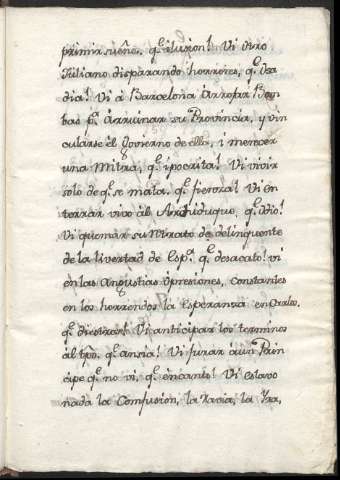 primir sueñe, q.e iluzion! Vi otro
Juliano disparando horrores, q.e osa
dia! Vi à Barcelona Arrojar Bom
bas p.a Arruinar su Provincia, y vin
cularse el Govierno de ella, i merecer
una Mitra, q.e ipocrita! Vi vivir
solo de q.e se mata, q.e fiereza! Vi en
terrar vivo àl Archiduque, q.e odio!
Vi quemar su retrato de delinquente
de la livertad de Esp.a q.e desacato! vi
en las Angustias Opresiones, constantes
en los horrendos la Esperanza en Carlos,
q.e diestras! Vi anticipar los terminos
àl tpo. q.e ansia! Vi jurar à un Prin
cipe q.e no vi, q.e encanto! Vi eslavo
nada la Confusion, la Yra,